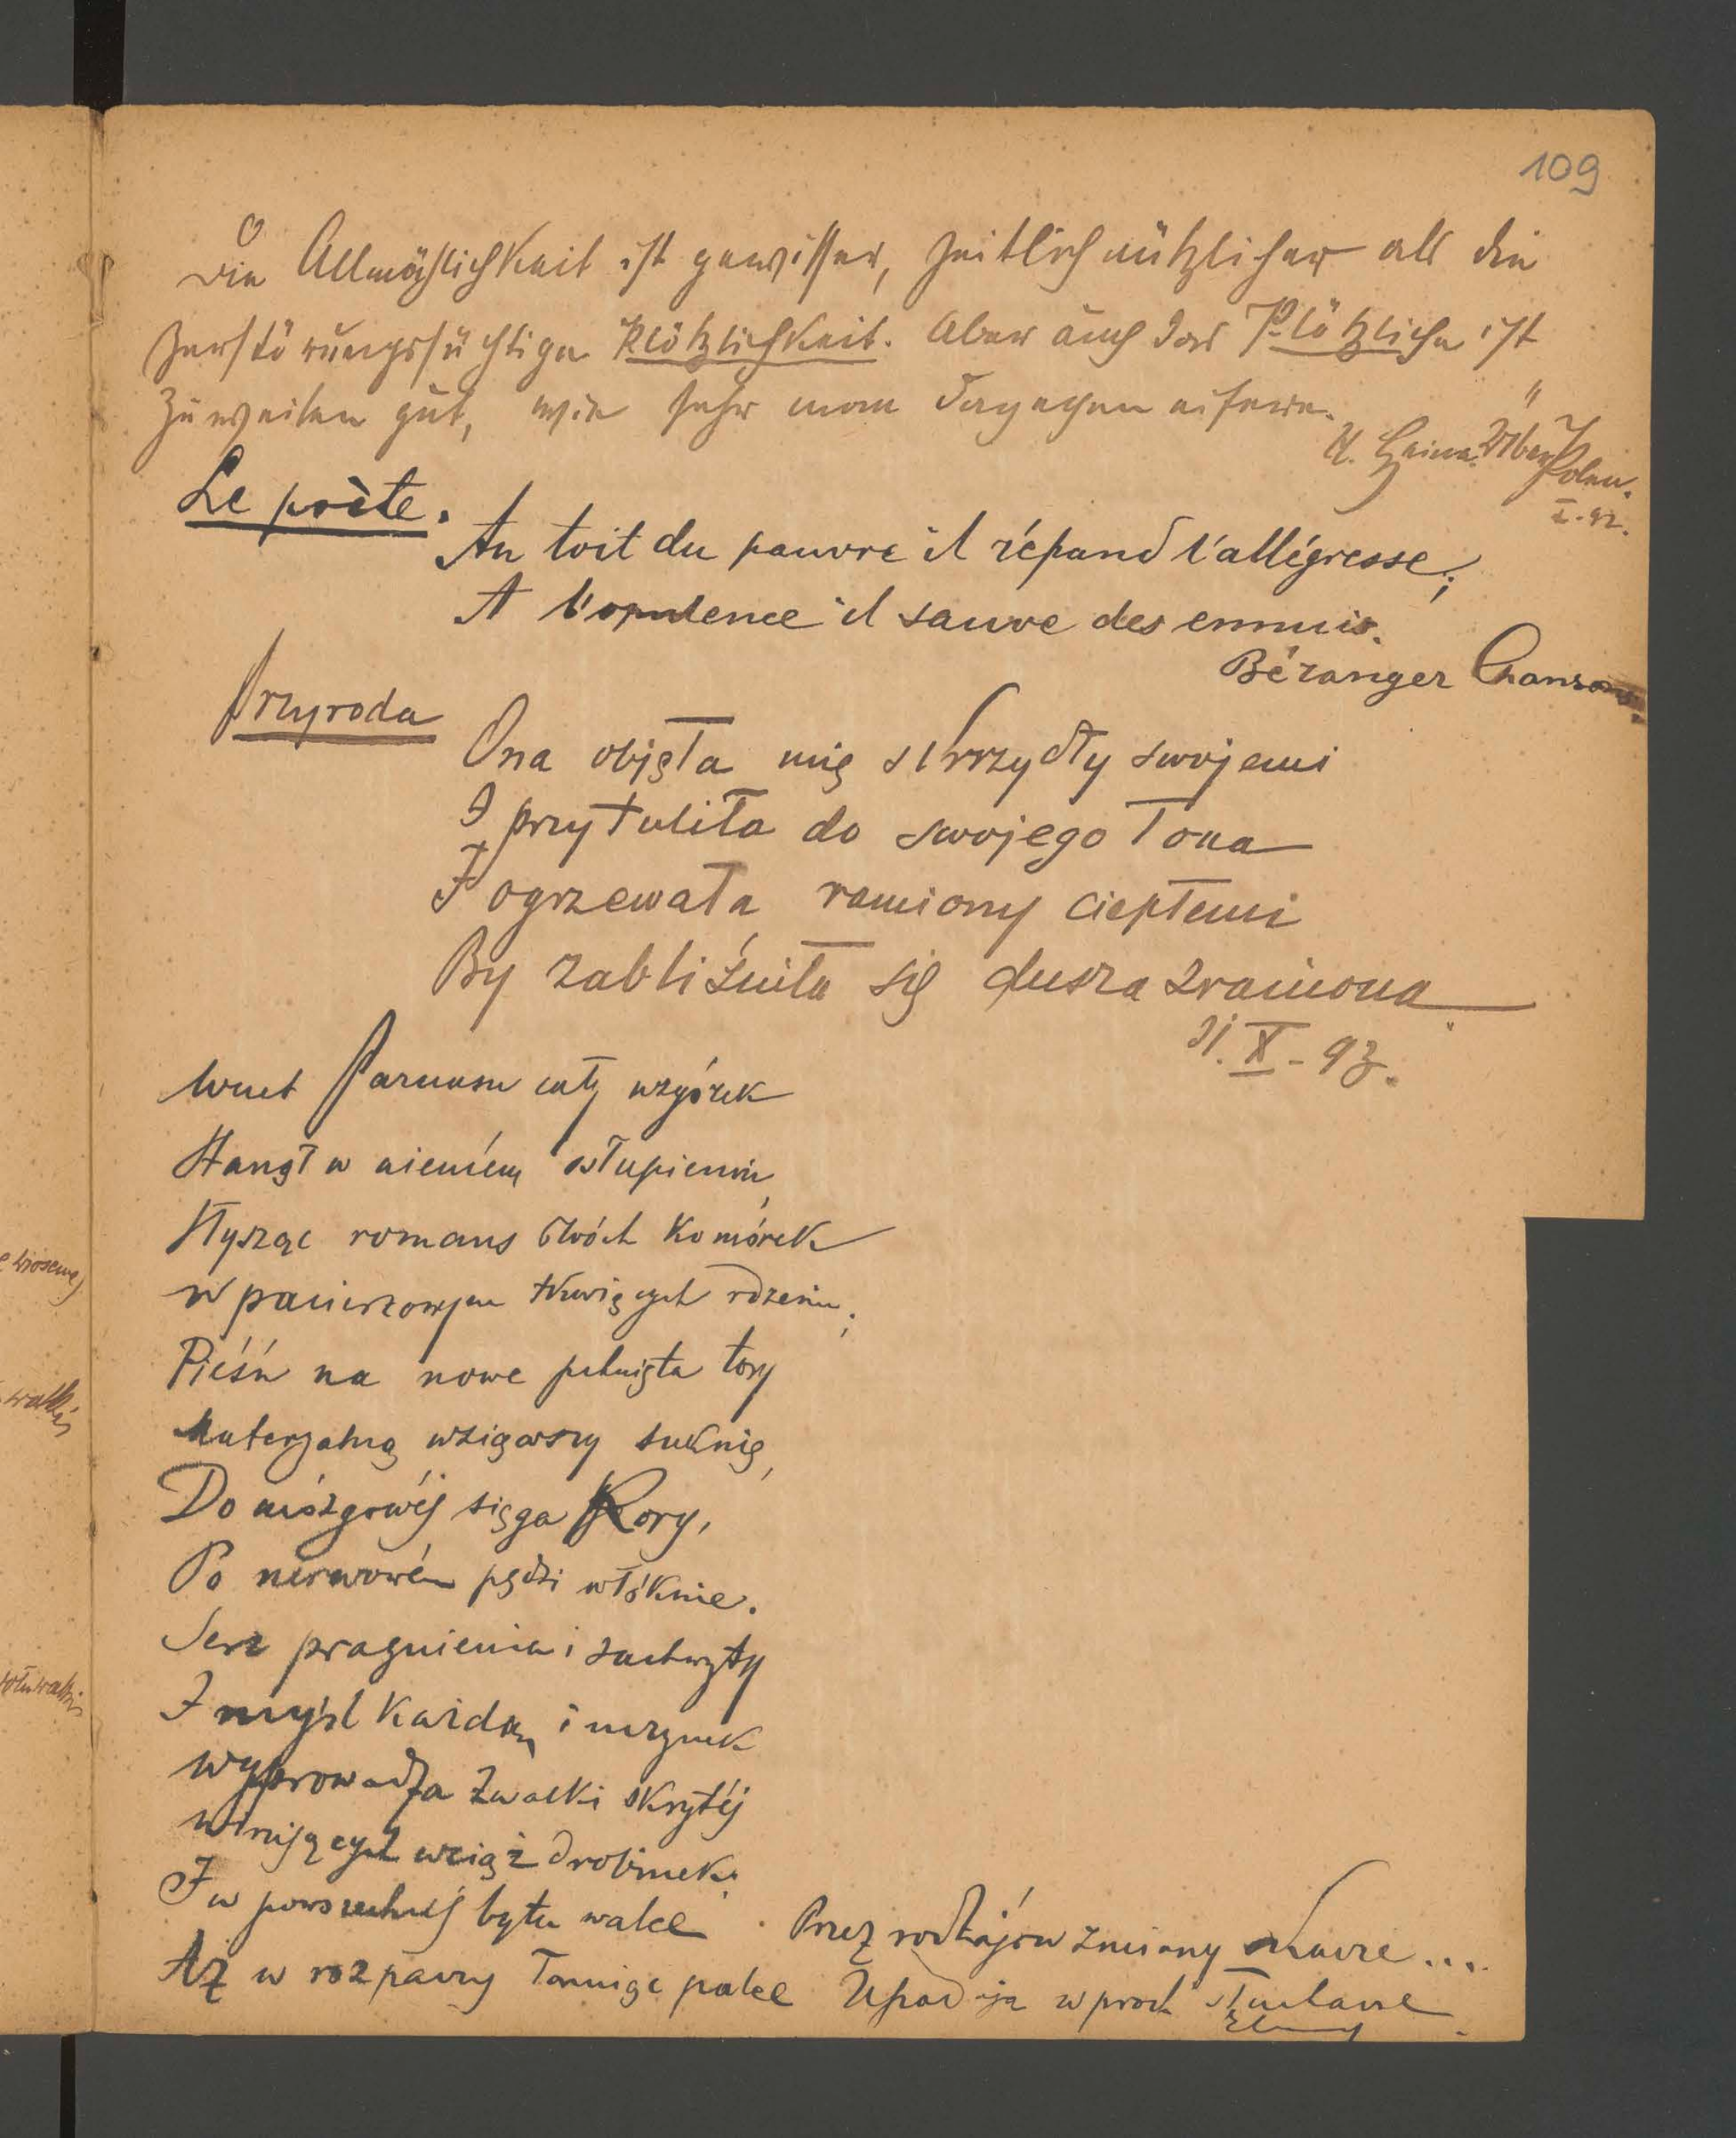 109
Die Allmählichkeit ist gewisser, zeitlich nützlicher als die
zerstörungssüchtige Plötzlichkeit. Aber auch das Plötzliche ist
zuweilen gut, wie sehr man dagegen eifere.
H. Heine. Über Polen.
I-92.
Le poète.
Au toit du pauvre il répand l'allégresse;
A l'opulence il sauve des ennuis.
Béranger Chansons
Przyroda
Ona objęła mię skrzydły swojemi
I przytuliła do swojego łona
I ogrzewała ramiony ciepłemi
By zabliźniła się dusza zraniona
31. X - 93.
Wnet Parnasu cały wzgórek
Stanął w niemém osłupieniu,
Słysząc romans dwóch komórek
W pacierzowym tkwiących rdzeniu;
Pieśń na nowe pchnięta tory
Materjalną wziąwszy suknię,
Do mózgowéj sięga kory,
Po nerwowém pędzi włóknie.
Serc pragnienia i zachwyty
I myśl każdą i uczynek
Wyprowadza z walki skrytéj
Wirujących wciąż drobinek.
I w powszechnéj bytu walce
Przez rodzajów zmiany kracze...
Aż w rozpaczy łamiąc palce
Upadają w proch słuchacze
e wiosenne
walki